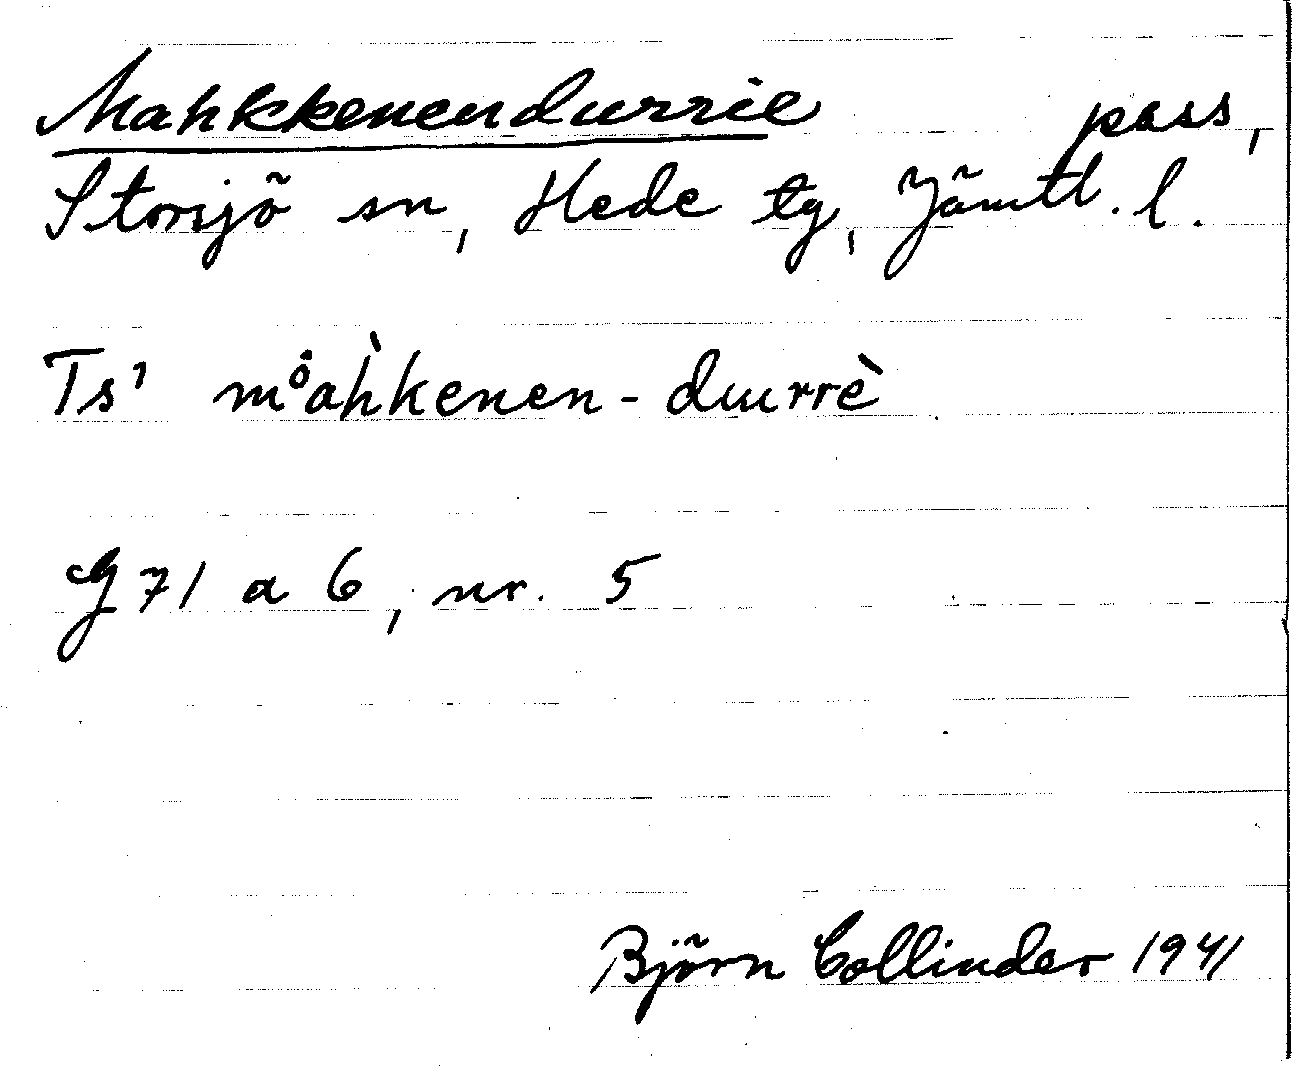 Mahkkenendurrie pass,
Storsjö sn, Hede tg, Jämtl. l.
Ts' m°åah̀kenen-duurrè
J 71 a 6, nr. 5
Björn Collinder 1941